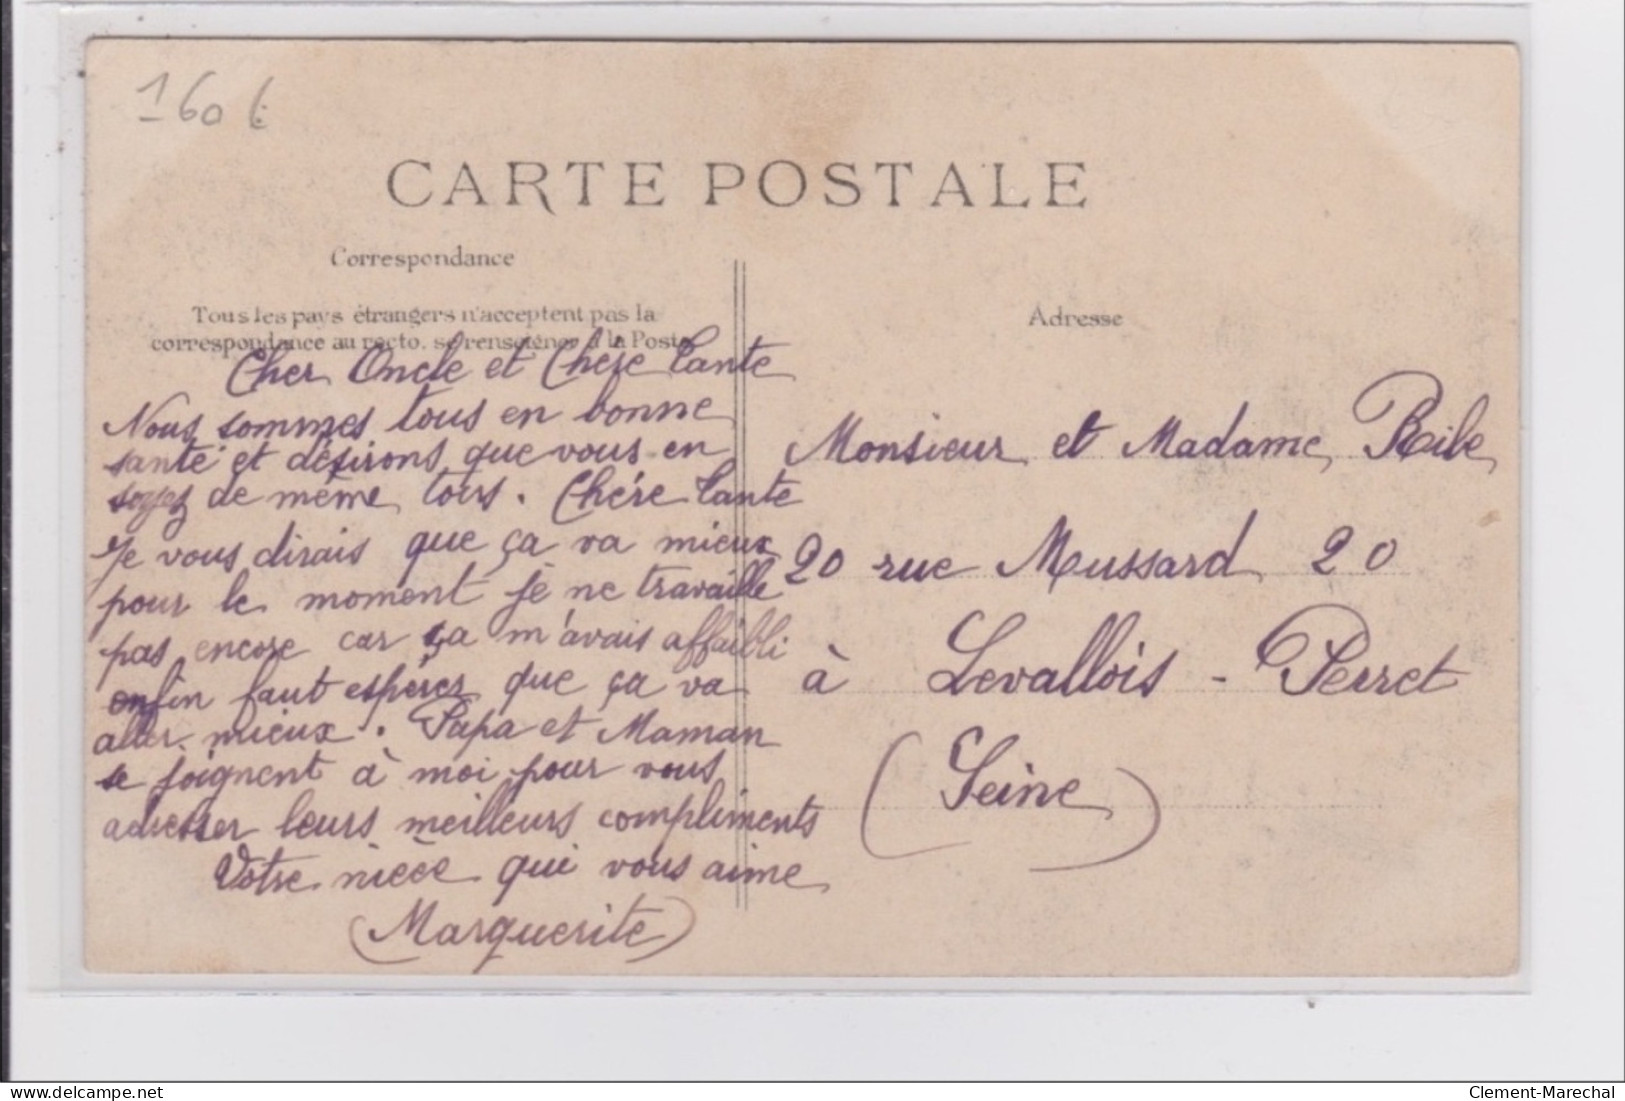 160 €
CARTE POSTALE
Correspondance
Tous les pays étrangers n'acceptent pas la
correspondance au recto. se renseigner à la Poste
Cher Oncle et Chère Tante
Nous sommes tous en bonne
santé et désirons que vous en
soyez de même tous. Chére Tante
Je vous dirais que ça va mieux
pour le moment je ne travaille
pas encore car ça m'avais affaibli
enfin faut espérer que ça va
aller mieux. Papa et Maman
se joignent à moi pour vous
adresser leurs meilleurs compliments
Votre nièce qui vous aime
(Marguerite)
Adresse
Monsieur et Madame Ribe
20 rue Mussard 20
à Levallois - Perret
(Seine)
delcampe.net
Clement-Marechal